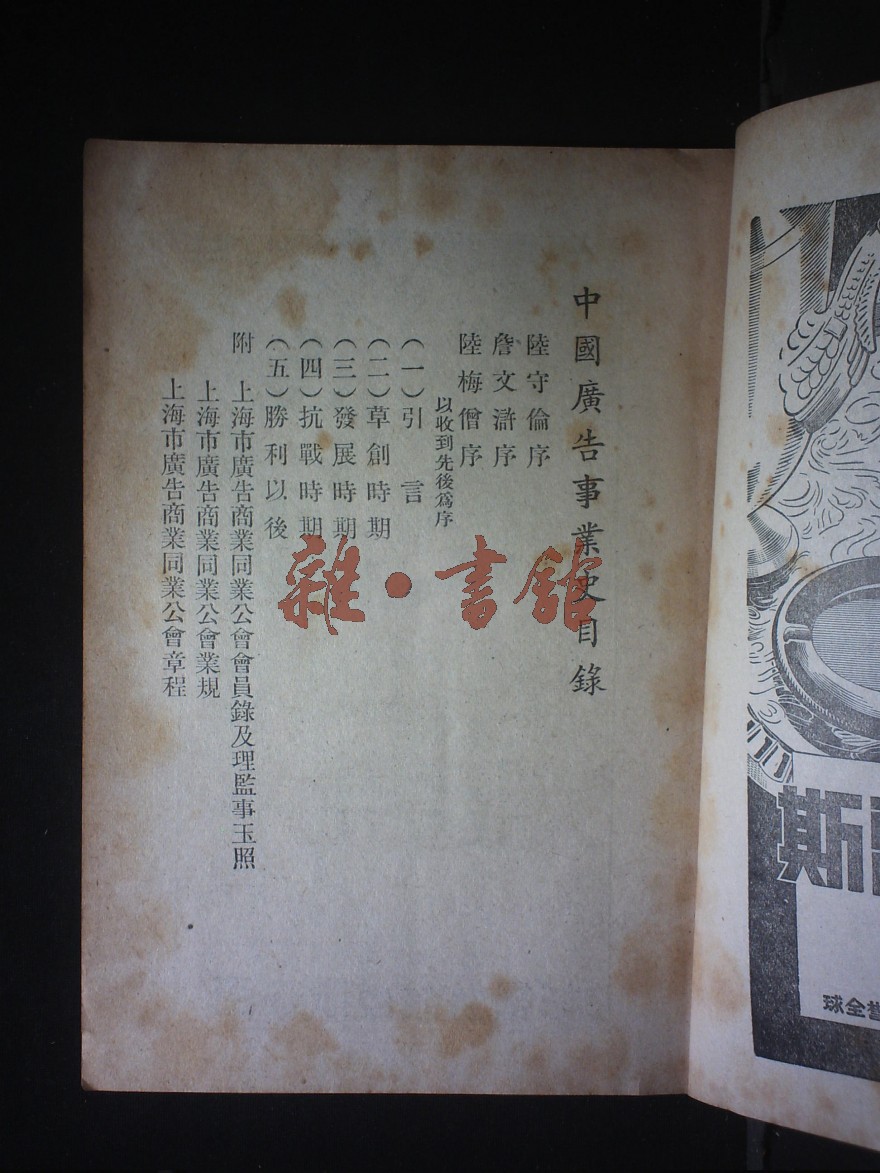 中國廣告事業史目錄
陸守倫序
詹文滸序
陸梅僧序
以收到先後爲序
(一)引言
(二)草創時期
(三)發展時期
(四)抗戰時期
(五)勝利以後
附 上海市廣告商業同業公會會員錄及理監事玉照
上海市廣告商業同業公會業規
上海市廣告商業同業公會章程
雜·書館
斯
譽全球